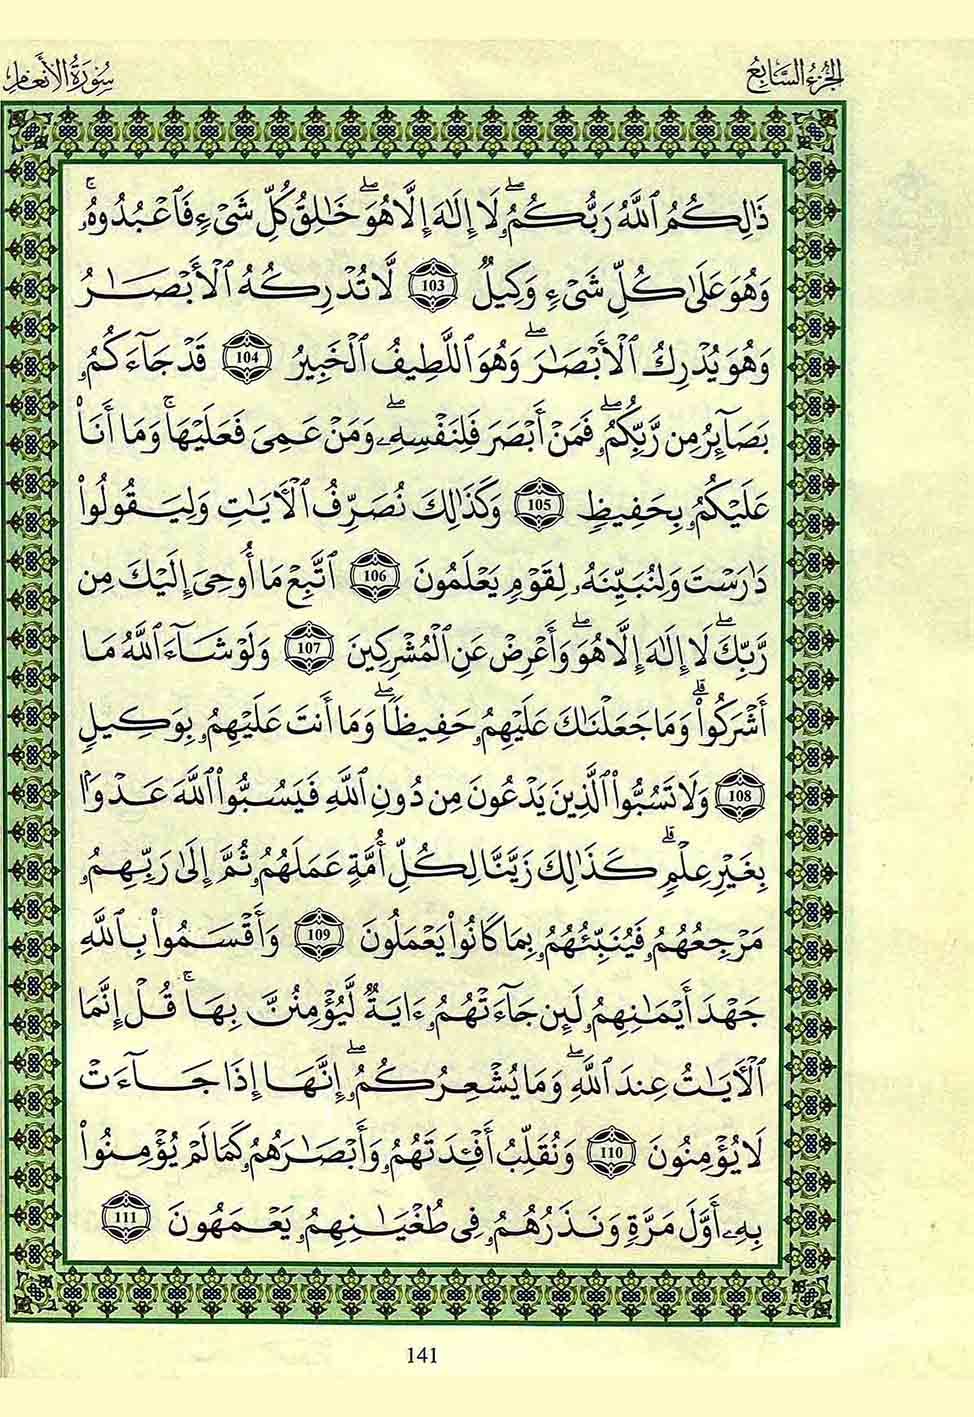 الجزء السابع
سورة الأنعام
ذَٰلِكُمُ ٱللَّهُ رَبُّكُمُۥۖ لَا إِلَٰهَ إِلَّا هُوَۖ خَٰلِقُ كُلِّ شَيْءٍ فَٱعْبُدُوهُۥۚ
وَهُوَ عَلَىٰ كُلِّ شَيْءٍ وَكِيلٌ 103 لَّا تُدْرِكُهُ ٱلْأَبْصَٰرُ
وَهُوَ يُدْرِكُ ٱلْأَبْصَٰرَۖ وَهُوَ ٱللَّطِيفُ ٱلْخَبِيرُ 104 قَدْ جَآءَكُمُۥ
بَصَآئِرُ مِن رَّبِّكُمُۥۖ فَمَنْ أَبْصَرَ فَلِنَفْسِهِۦۖ وَمَنْ عَمِيَ فَعَلَيْهَاۚ وَمَا أَنَا۠
عَلَيْكُمُۥ بِحَفِيظٍ 105 وَكَذَٰلِكَ نُصَرِّفُ ٱلْأَيَٰتِ وَلِيَقُولُوا۟
دَٰرَسْتَ وَلِنُبَيِّنَهُۥ لِقَوْمٍ يَعْلَمُونَ 106 ٱتَّبِعْ مَا أُوحِيَ إِلَيْكَ مِن
رَّبِّكَۖ لَا إِلَٰهَ إِلَّا هُوَۖ وَأَعْرِضْ عَنِ ٱلْمُشْرِكِينَ 107 وَلَوْ شَآءَ ٱللَّهُ مَا
أَشْرَكُوا۟ۗ وَمَا جَعَلْنَٰكَ عَلَيْهِمُۥ حَفِيظًاۖ وَمَا أَنتَ عَلَيْهِمُۥ بِوَكِيلٍ
108 وَلَا تَسُبُّوا۟ ٱلَّذِينَ يَدْعُونَ مِن دُونِ ٱللَّهِ فَيَسُبُّوا۟ ٱللَّهَ عَدْوًۢا
بِغَيْرِ عِلْمٍۗ كَذَٰلِكَ زَيَّنَّا لِكُلِّ أُمَّةٍ عَمَلَهُمُۥ ثُمَّ إِلَىٰ رَبِّهِمُۥ
مَرْجِعُهُمُۥ فَيُنَبِّئُهُمُۥ بِمَا كَانُوا۟ يَعْمَلُونَ 109 وَأَقْسَمُوا۟ بِٱللَّهِ
جَهْدَ أَيْمَٰنِهِمُۥ لَئِن جَآءَتْهُمُۥ ءَايَةٌ لَّيُؤْمِنُنَّ بِهَاۚ قُلْ إِنَّمَا
ٱلْأَيَٰتُ عِندَ ٱللَّهِۖ وَمَا يُشْعِرُكُمُۥۖ إِنَّهَا إِذَا جَآءَتْ
لَا يُؤْمِنُونَ 110 وَنُقَلِّبُ أَفْئِدَتَهُمُۥ وَأَبْصَٰرَهُمُۥ كَمَا لَمْ يُؤْمِنُوا۟
بِهِۦ أَوَّلَ مَرَّةٍ وَنَذَرُهُمُۥ فِي طُغْيَٰنِهِمُۥ يَعْمَهُونَ 111
141